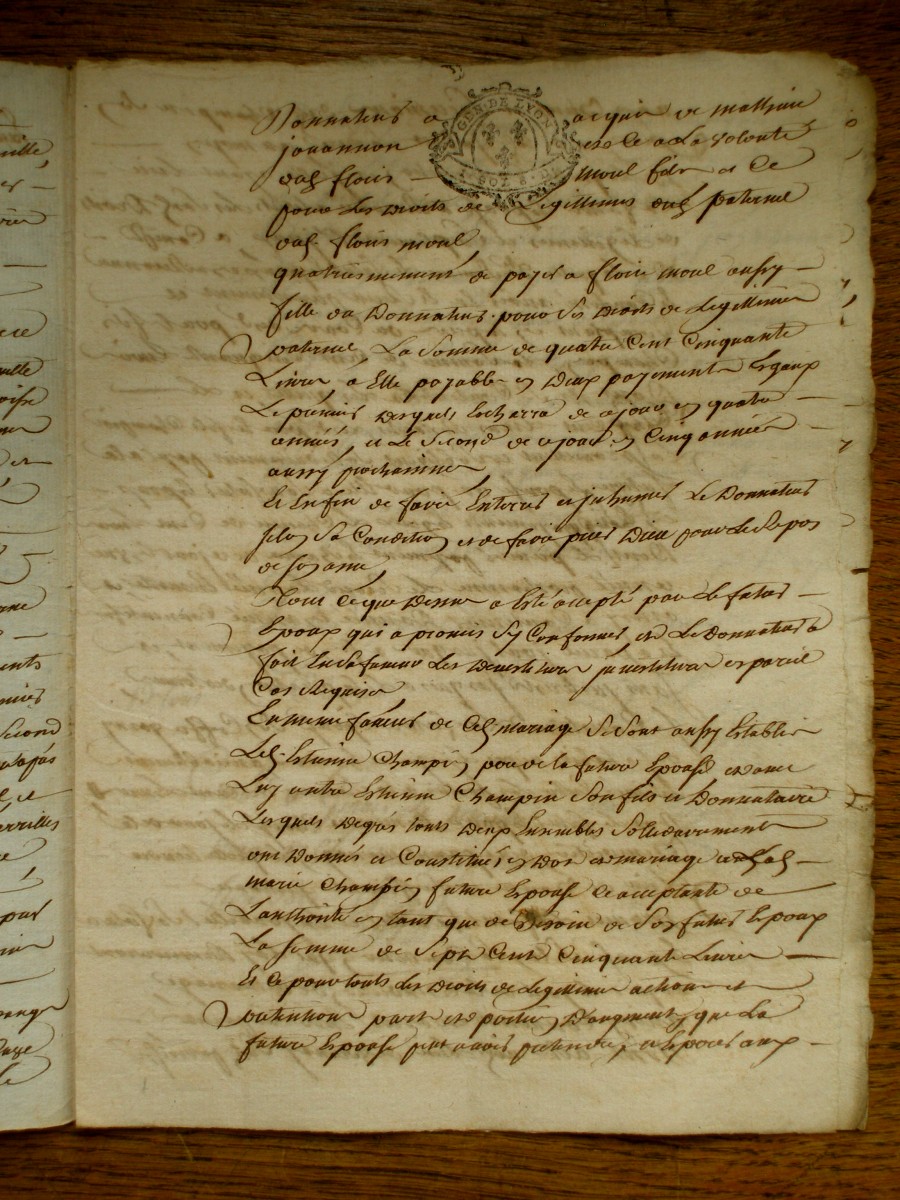 GEN. DE LYON
Donnateur a acquis de mathieu
jouannon et ce a la volonté
dud. floris moul fils et ce
pour les droits de Legittimes dud. paternel
dud. floris moul,
quatriesmement de payer a florie moul aussy
fille du Donnateur pour ses droits de Legittimes
paternel, La somme de quatre cent cinquante
Livres, a Elle payable en deux payements Egaux
Le premier desquels Escherra de ce jour en quatre
années, et Le second de ce jour en cinq années
aussy prochaines,
Et Enfin de faire Enterrer et jnhumer Le Donnateur
selon sa Condition et de faire prier Dieu pour Le Repos
de son ame,
Tout ce que dessus a Esté accepté par Le futur
Epoux qui a promis s'y Conformer et Le Donnateur a
fait En sa faveur Les devestitures jnvestitures en pareil
Cas Requises
En mesme faveur de ced. mariage se sont aussy Establis
Led. Estienne Champin pere de la future Epouse et avec
Luy autre Estienne Champin son fils et Donnataire
Lesquels de grés touts deux Ensembles sollidairement
ont Donnés et Constitués en Dot et mariage a lad.
marie Champin future Epouse ce acceptante de
L'authorité en tant que de Besoin de son futur Epoux
La somme de sept cent cinquante Livres
Et ce pour touts Les droits de Legittimes actions et
pretentions part et portion d'augment, que La
future Epouse peut avoir pretendre, et Esperer aux